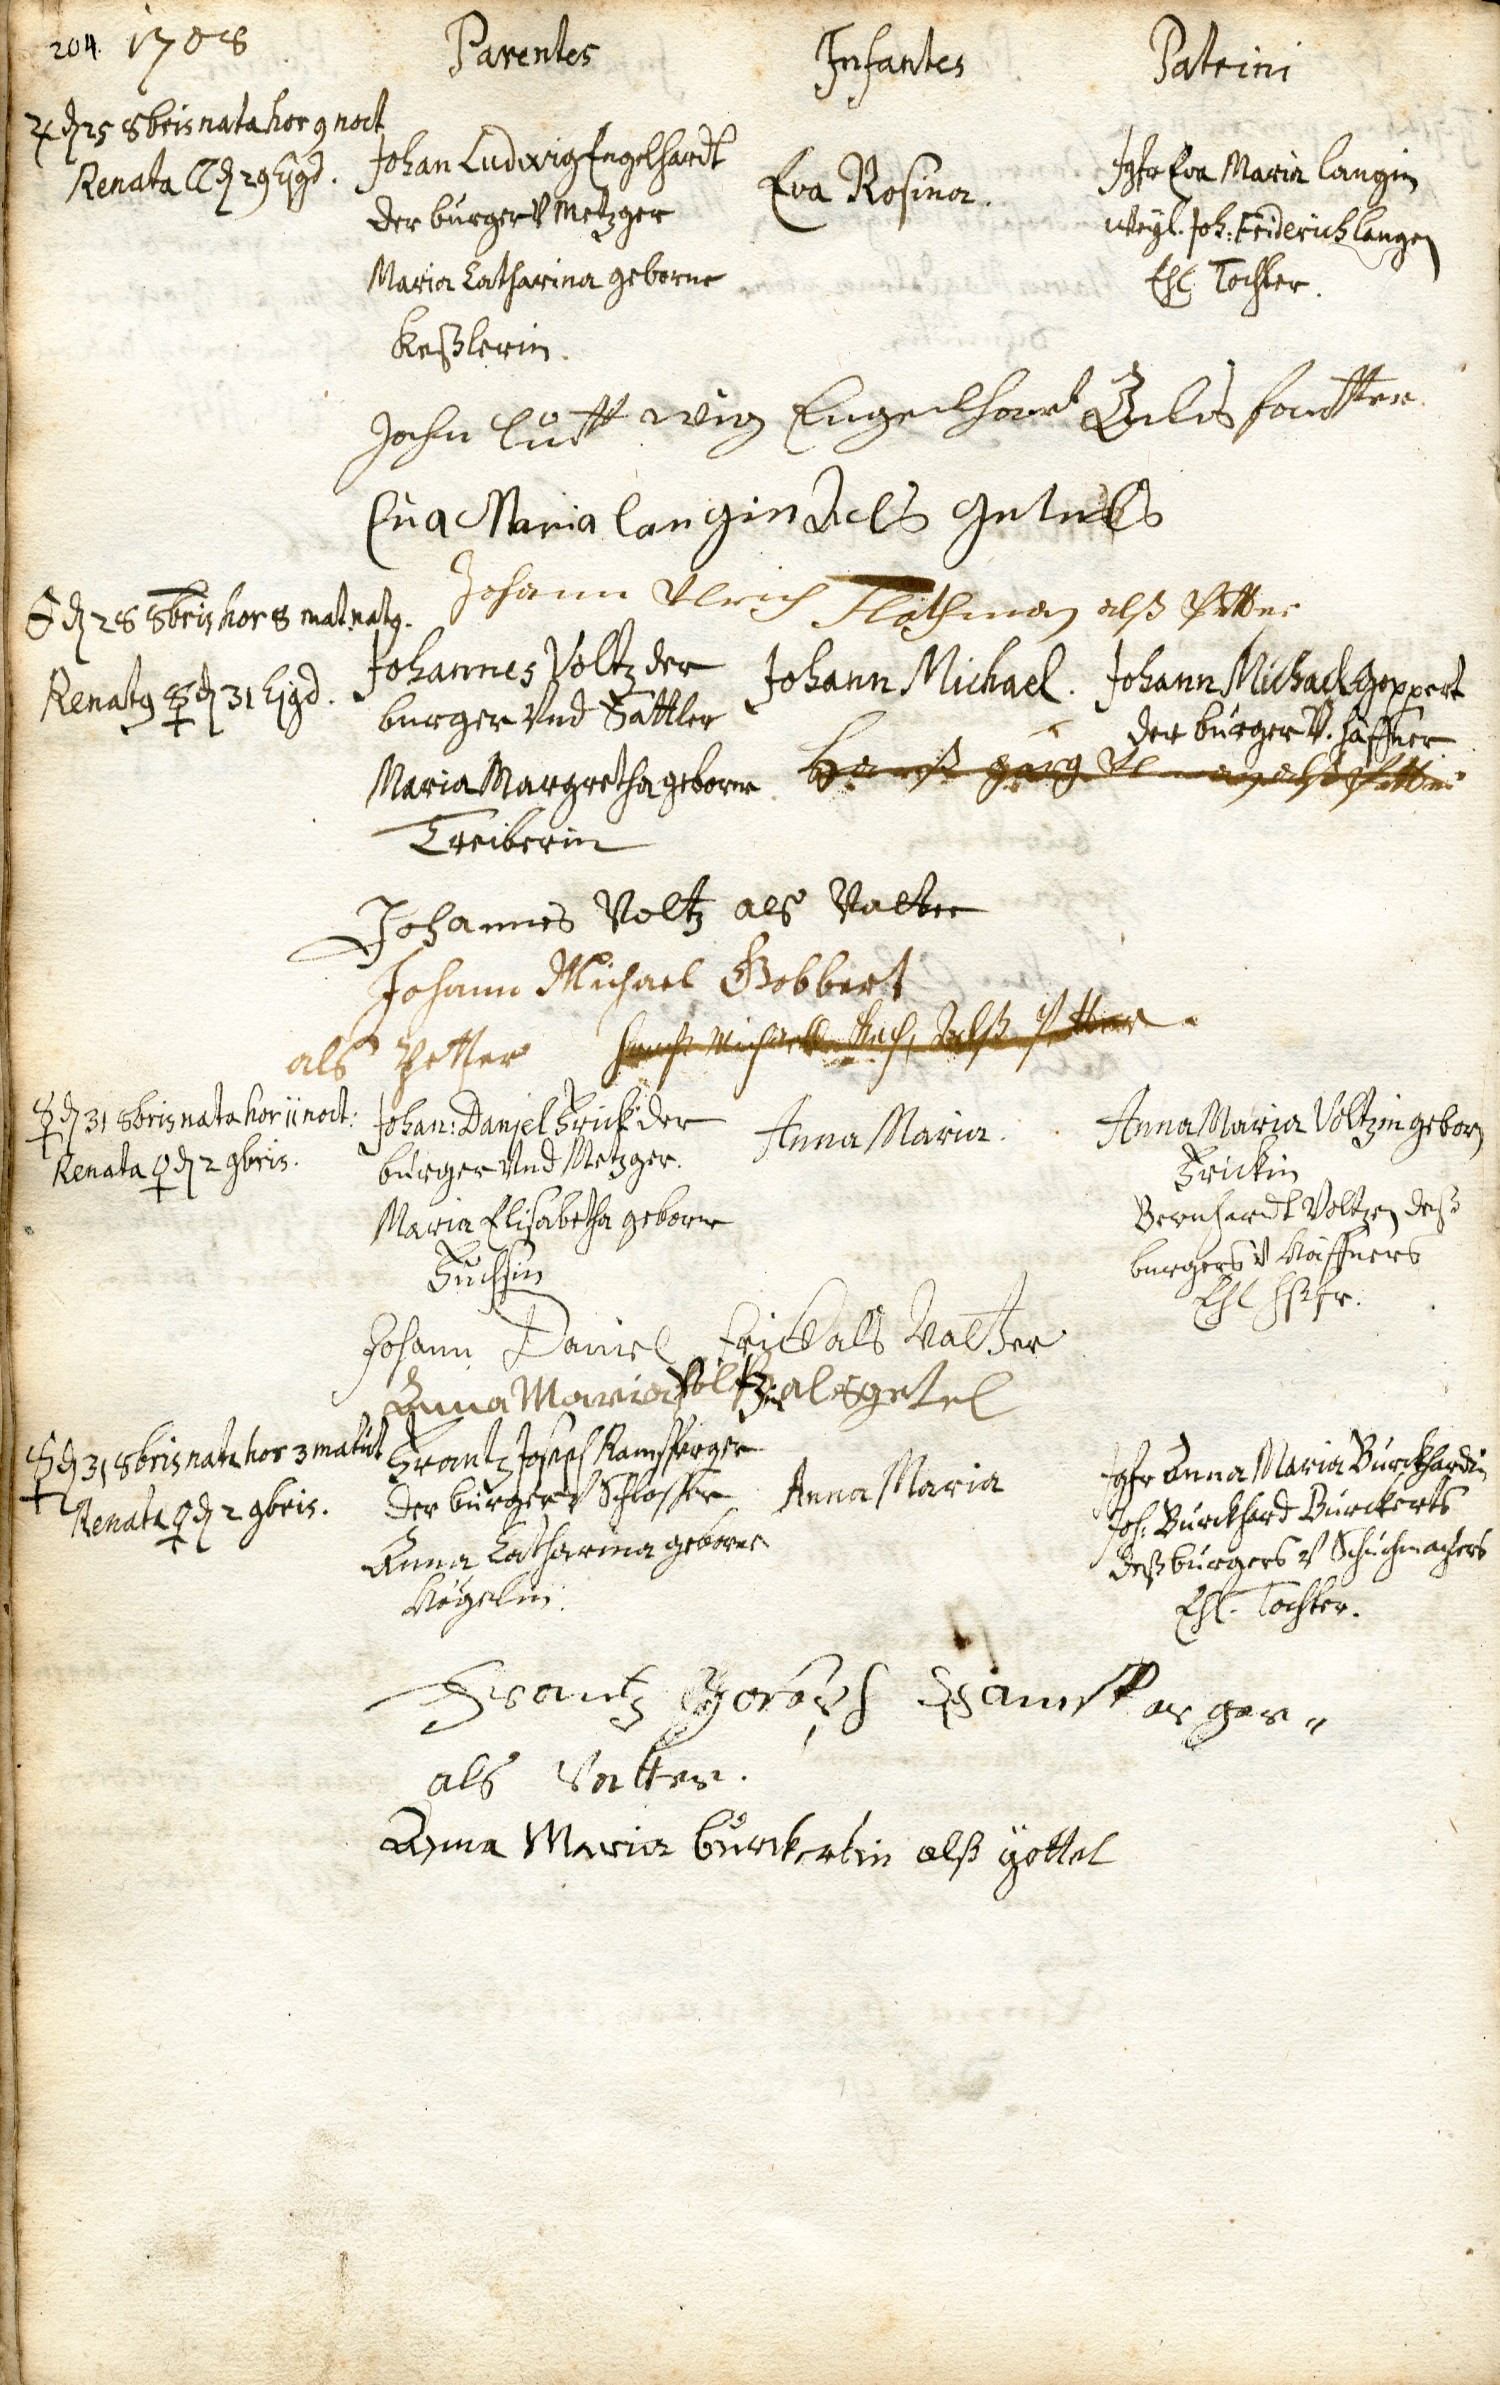 204. 1708
Parentes Infantes Patrini
♃ d 25 8bris nata hor 9 noct
Renata ☾ d 29 Ejgd.
Johan Ludwig Engelhardt
der burger v Metzger
Maria Catharina geborne
Keßlerin.
Eva Rosina.
Jgfr Eva Maria Langin
weyl. Joh: Friderich Langen
Ehl Tochter.
Johan Lutt wig Engelhart als fatter
Eva Maria Langin als
Johann Ulrich als Petter
d 28 8bris hor 8 mat nat9.
Renat9 ☿ d 31 Ejgd.
Johannes Voltz der
burger Vnd Sattler
Maria Margretha geborne
Treiberin
Johann Michael.
Johann Michael Goppert
der burger V. Haffner
Johannes Voltz als Vatter
Johann Michael Gobbert
als Petter
☿ d 31 8bris nata hor 11 noct:
Renata ♀ d 2 9bris.
Johan: Daniel Frick der
burger Vnd Metzger.
Maria Elisabetha geborne
Fuchsin
Anna Maria.
Anna Maria Voltzin geborn
Frickin
Bernhardt Voltzen deß
burgers v Haffners
Ehl Hßfr.
Johann Daniel Frick als Vatter
Anna Maria Voltzin als getel
☿ d 31 8bris nata hor 3 matut
Renata ♀ d 2 9bris.
Frantz Joseph Ramsperger
der burger v Schlosser
Anna Catharina geborne
Nögelin.
Anna Maria
Jgfr Anna Maria Burckhardin
Joh: Burckhard Burckerts
deß burgers v Schuhmachers
Ehl. Tochter.
Frantz Joseph Ramsperger
als Vatter.
Anna Maria burckertin alß gottel